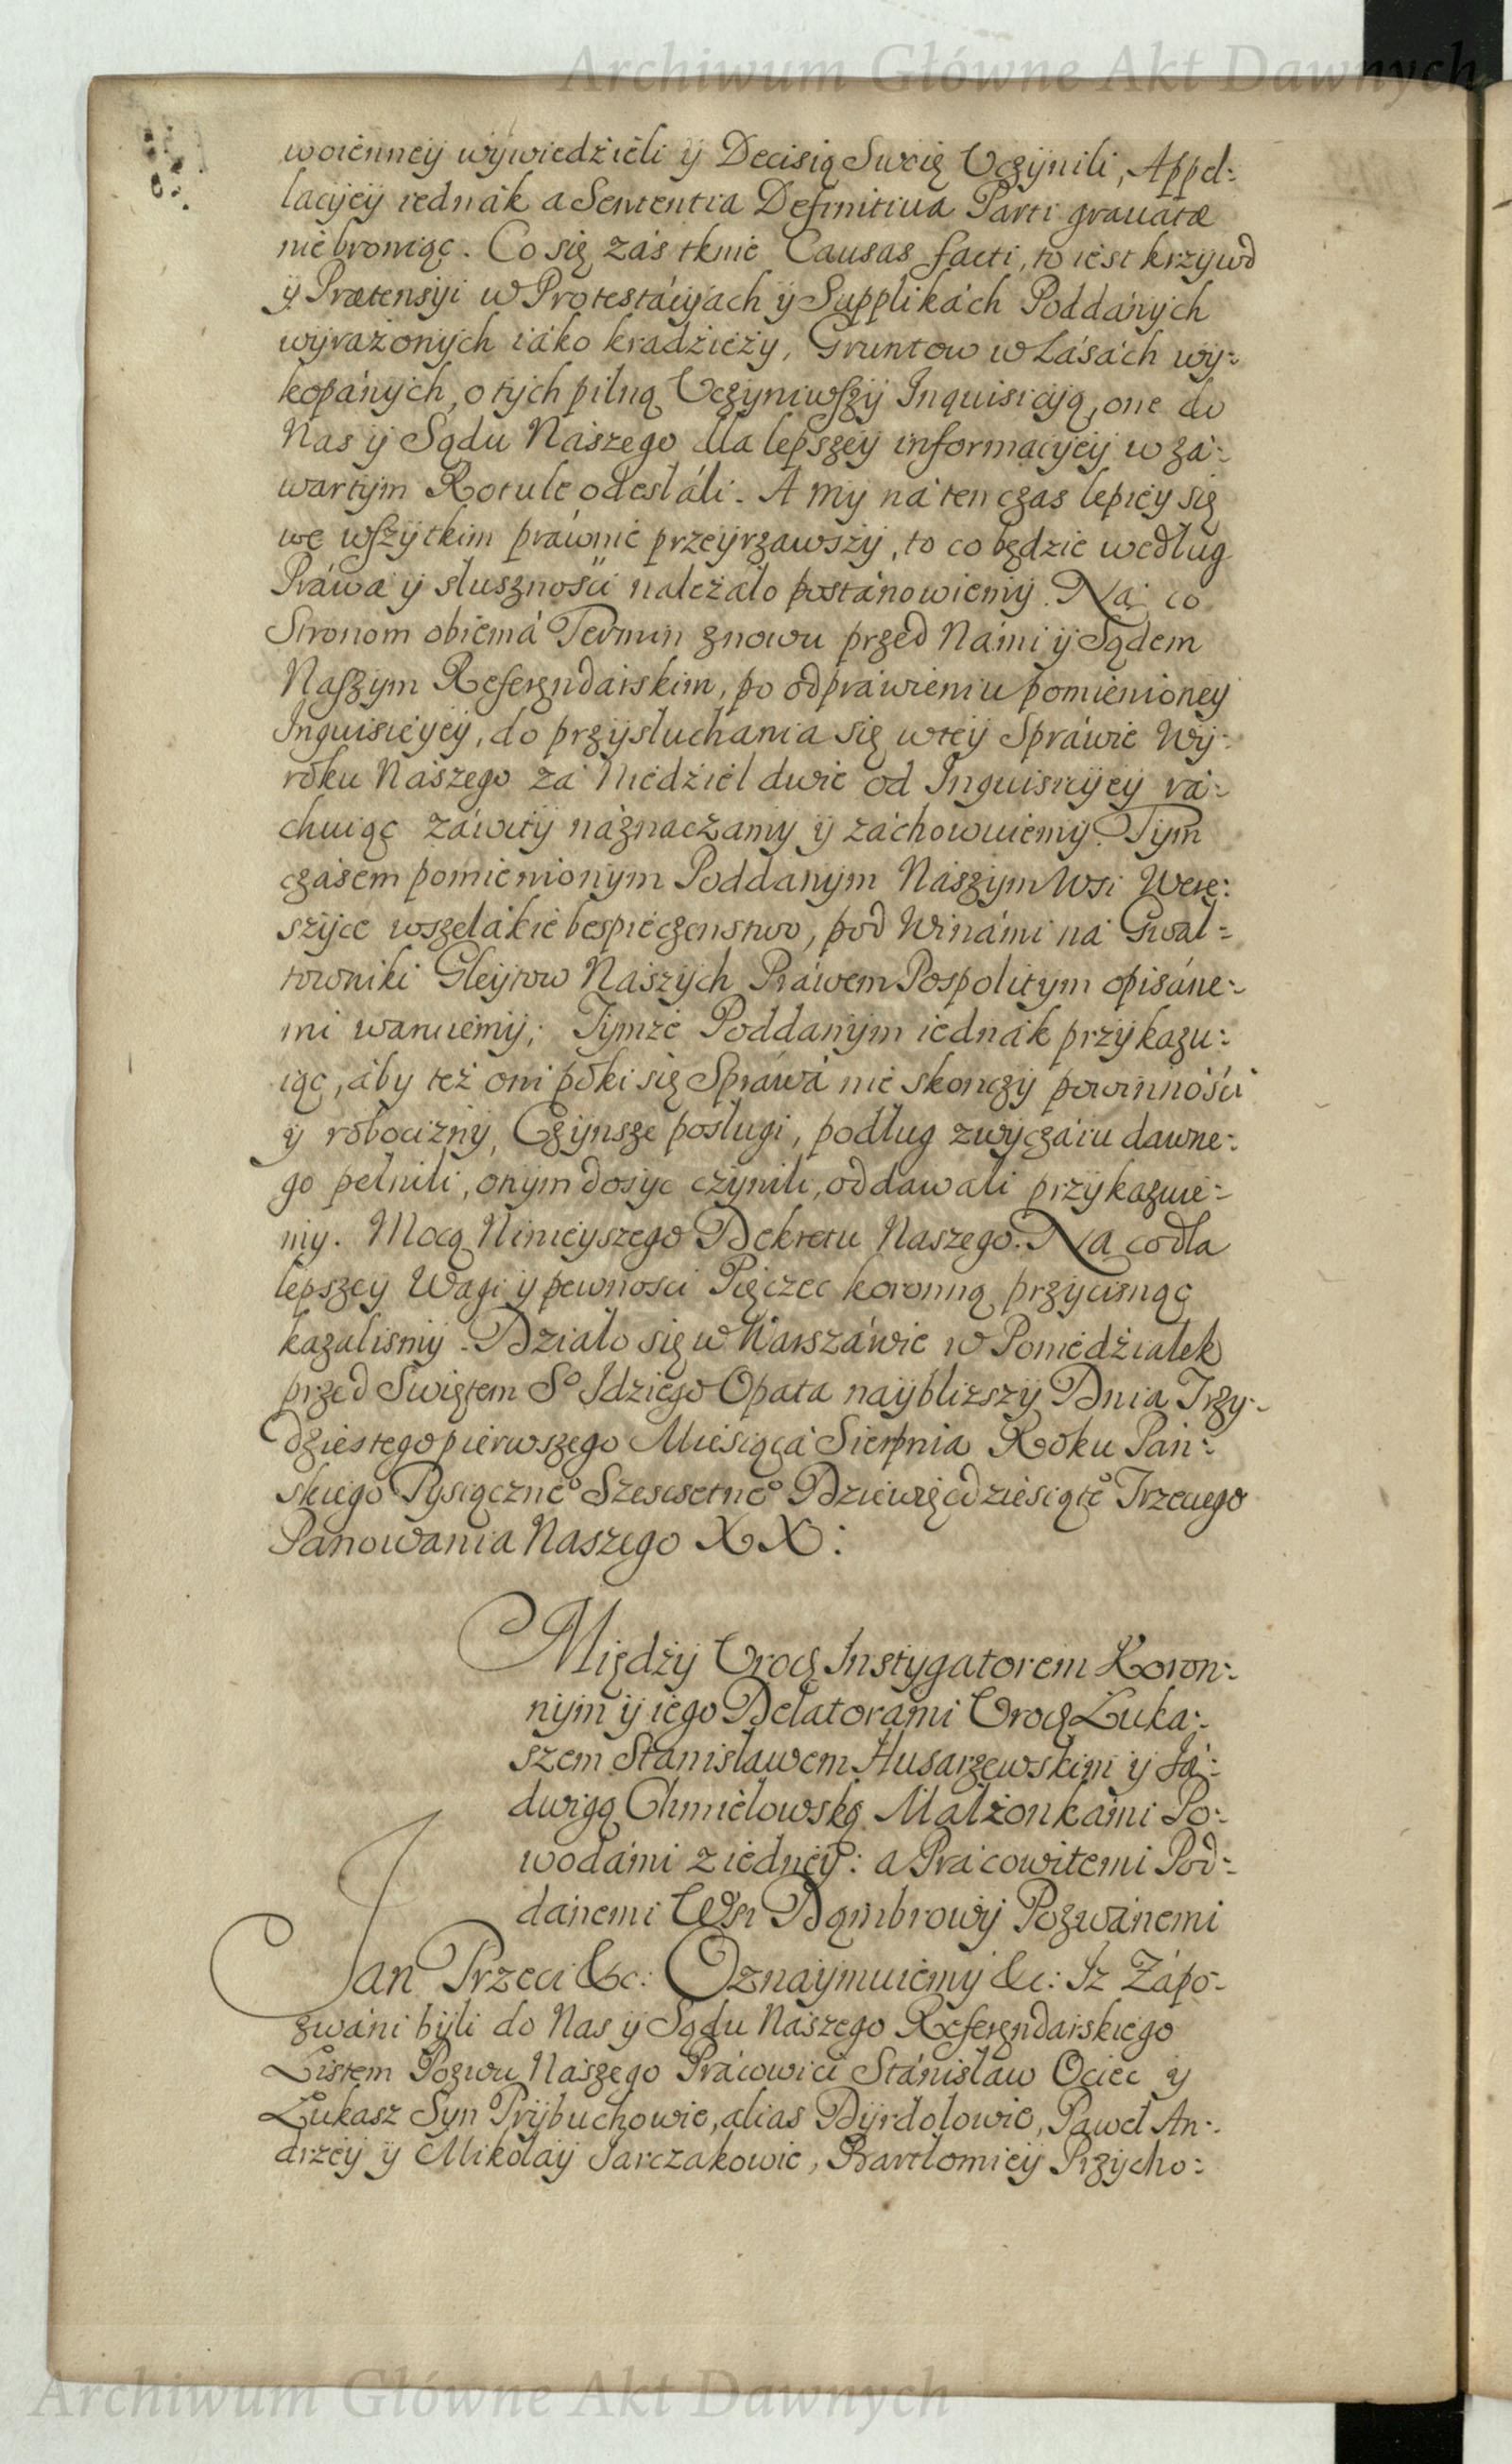 Archiwum Główne Akt Dawnych
woienney wywiedźieli ÿ Decisią Swoię Vczÿnili, Appel:
lacÿeÿ iednák a Sententia Definitiua Parti grauatæ
niebroniąc. Co się záś tknie Causas facti, to iest krzywd
ÿ Prætensÿi w Protestácÿách ÿ Supplikách Poddánÿch
wÿrażonÿch iáko kradźieży, Gruntow w Lásách wÿ:
kopánÿch, o tÿch pilną Vczyniwszÿ Inquisicÿą, one do
Nas ÿ Sądu Nászego dla lepszeÿ informacÿeÿ w zá:
wartÿm Rotule odesłáli. A mÿ ná ten czas lepieÿ się
we wszÿtkim práwnie przeÿrzawszÿ, to co będzie według
Práwa ÿ słusznośći należáło postánowiemÿ. Ná co
Stronom obiemá Termin znowu przed Námi ÿ Sądem
Naszym Referęndarskim, po odpráwieniu pomienioneÿ
Inquisicÿeÿ, do przÿsłuchania się w teÿ Spráwie Wÿ:
roku Nászego zá Niedźiel dwie od Inquisicÿeÿ rá:
chuiąc záwitÿ náznaczamÿ ÿ záchowuiemÿ. Tÿm
czásem pomienionÿm Poddanÿm Nászÿm Wsi Were:
szÿce wszelákie bespieczenstwo, pod Winámi ná Gwał:
towniki Gleÿtow Nászÿch Práwem Pospolitym opisáne:
mi waruiemÿ; Tÿmże Poddanÿm iednák przÿkazu:
iąc, áby też oni póki się Spráwá nie skonczÿ powinnośći
ÿ robociznÿ, Czÿnsze posługi, podług zwÿczáiu dawne:
go pełnili, onÿm dosÿc czÿnili, oddawali przÿkazuie:
mÿ. Mocą Ninieÿszego Dekretu Naszego. Na co dla
lepszeÿ Wagi ÿ pewnosci Pięczec koronną przÿcisnąc
kazalismÿ. Działo się w Warszáwie w Poniedźiałek
przed Swiętem S° Idziego Opata naÿblizszÿ Dnia Trzy:
dziestego pierwszego Miesiącá Sierpnia Roku Pań:
skiego Tÿsiączne° Szescsetne° Dziewięćdziesiąte° Trzeciego
Panowania Naszego XX:
Międzÿ Vrodz Instÿgatorem Koron:
nÿm ÿ iego Delatorami Vrodz Łuka:
szem Stanisławem Husarzewskim ÿ Já:
dwigą Chmielowską Małżonkámi Po:
wodámi z iedneÿ: a Prácowitemi Pod:
dánemi Wsi Dąmbrowÿ Pozwánemi
Jan Trzeci &c: Oznaÿmuiemÿ &c: Iz Zápo:
zwáni bÿli do Nas ÿ Sądu Nászego Referęndarskiego
Listem Pozwu Nászego Prácowici Stánisław Ociec ÿ
Łukasz Syn Prÿbuchowie, alias Dÿrdolowie, Paweł An:
drzeÿ ÿ Mikołaÿ Jarczakowie, Bartłomieÿ Przÿcho:
Archiwum Główne Akt Dawnych